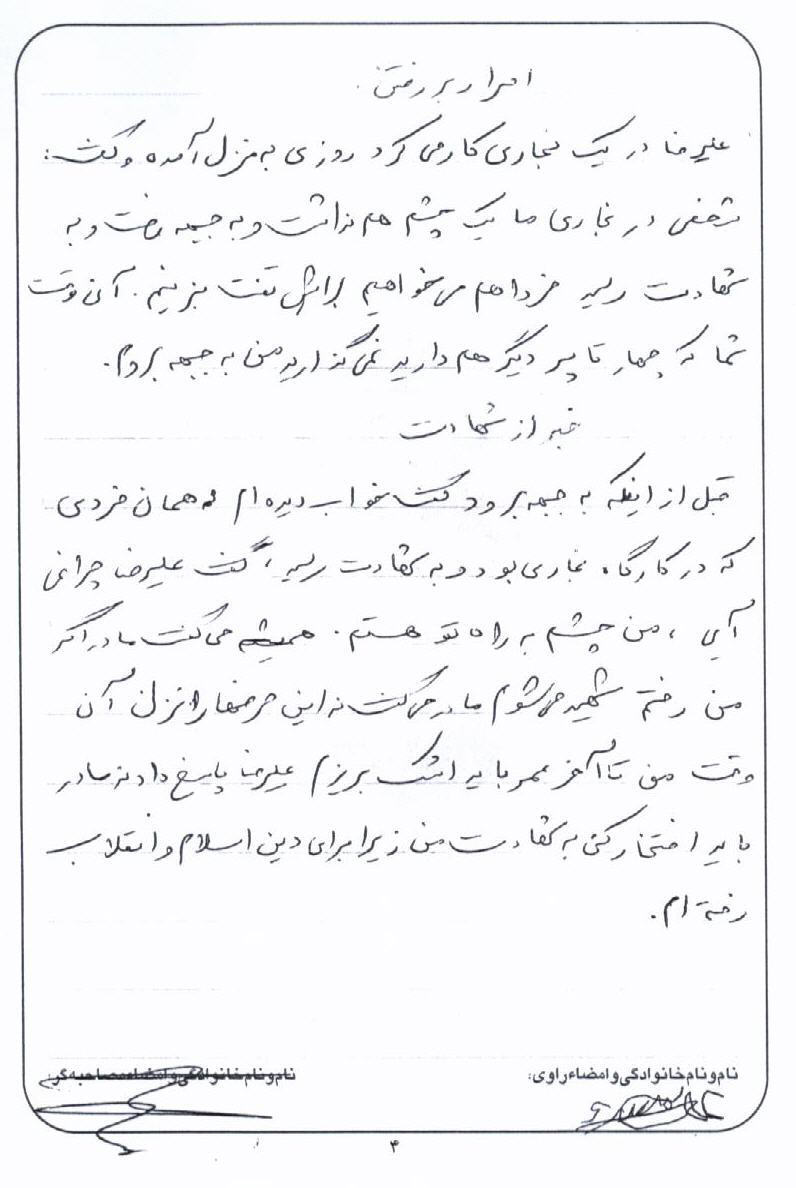 اصرار بر رفتن.
علیرضا در یک نجاری کار می کرد روزی به منزل آمده و گفت:
شخصی در نجاری ما یک چشم هم نداشت و به جبهه رفت و به
شهادت رسید فردا هم می خواهیم برایش تفت بزنیم. آن وقت
شما که چهار تا پسر دیگر هم دارید نمی گذارید من به جبهه بروم.
خبر از شهادت
قبل از اینکه به جبهه برود گفت خواب دیده ام که همان فردی
که در کارگاه نجاری بود و به شهادت رسید، گفت علیرضا چرا نمی
آیی، من چشم به راه تو هستم. همیشه می گفت مادر اگر
من رفتم شهید می شوم مادر می گفت نه این حرفها را نزن آن
وقت من تا آخر عمر باید اشک بریزم علیرضا پاسخ داد نه مادر
باید افتخار کنی به شهادت من زیرا برای دین اسلام و انقلاب
رفته ام.
نام و نام خانوادگی و امضاء راوی:
نام و نام خانوادگی و امضاء مصاحبه گر:
۴